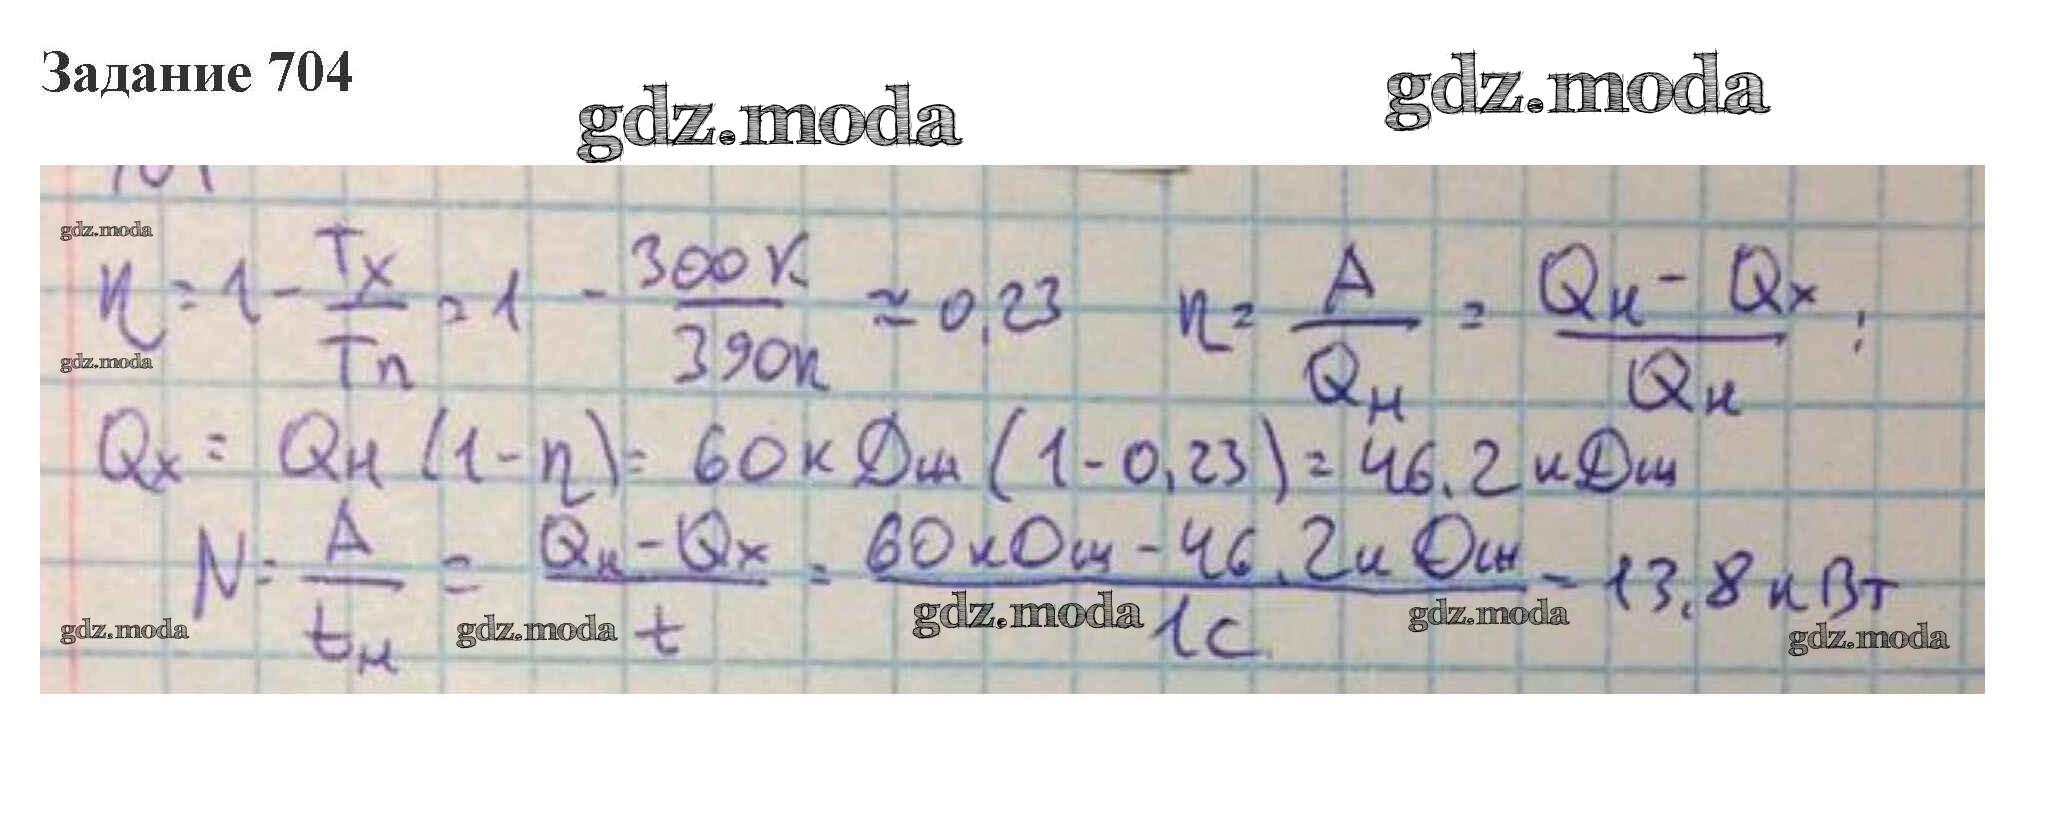 Задание 704
gdz.moda gdz.moda
gdz.moda
η = 1 - Tx/Tn = 1 - 300K/390K ≈ 0,23 η = A/Qн = (Qн - Qx)/Qн ;
gdz.moda
Qx = Qн (1 - η) = 60 кДж (1 - 0,23) = 46.2 кДж
N = A/tн = (Qн - Qx)/t = (60 кДж - 46.2 кДж)/1c = 13.8 кВт
gdz.moda gdz.moda gdz.moda gdz.moda gdz.moda